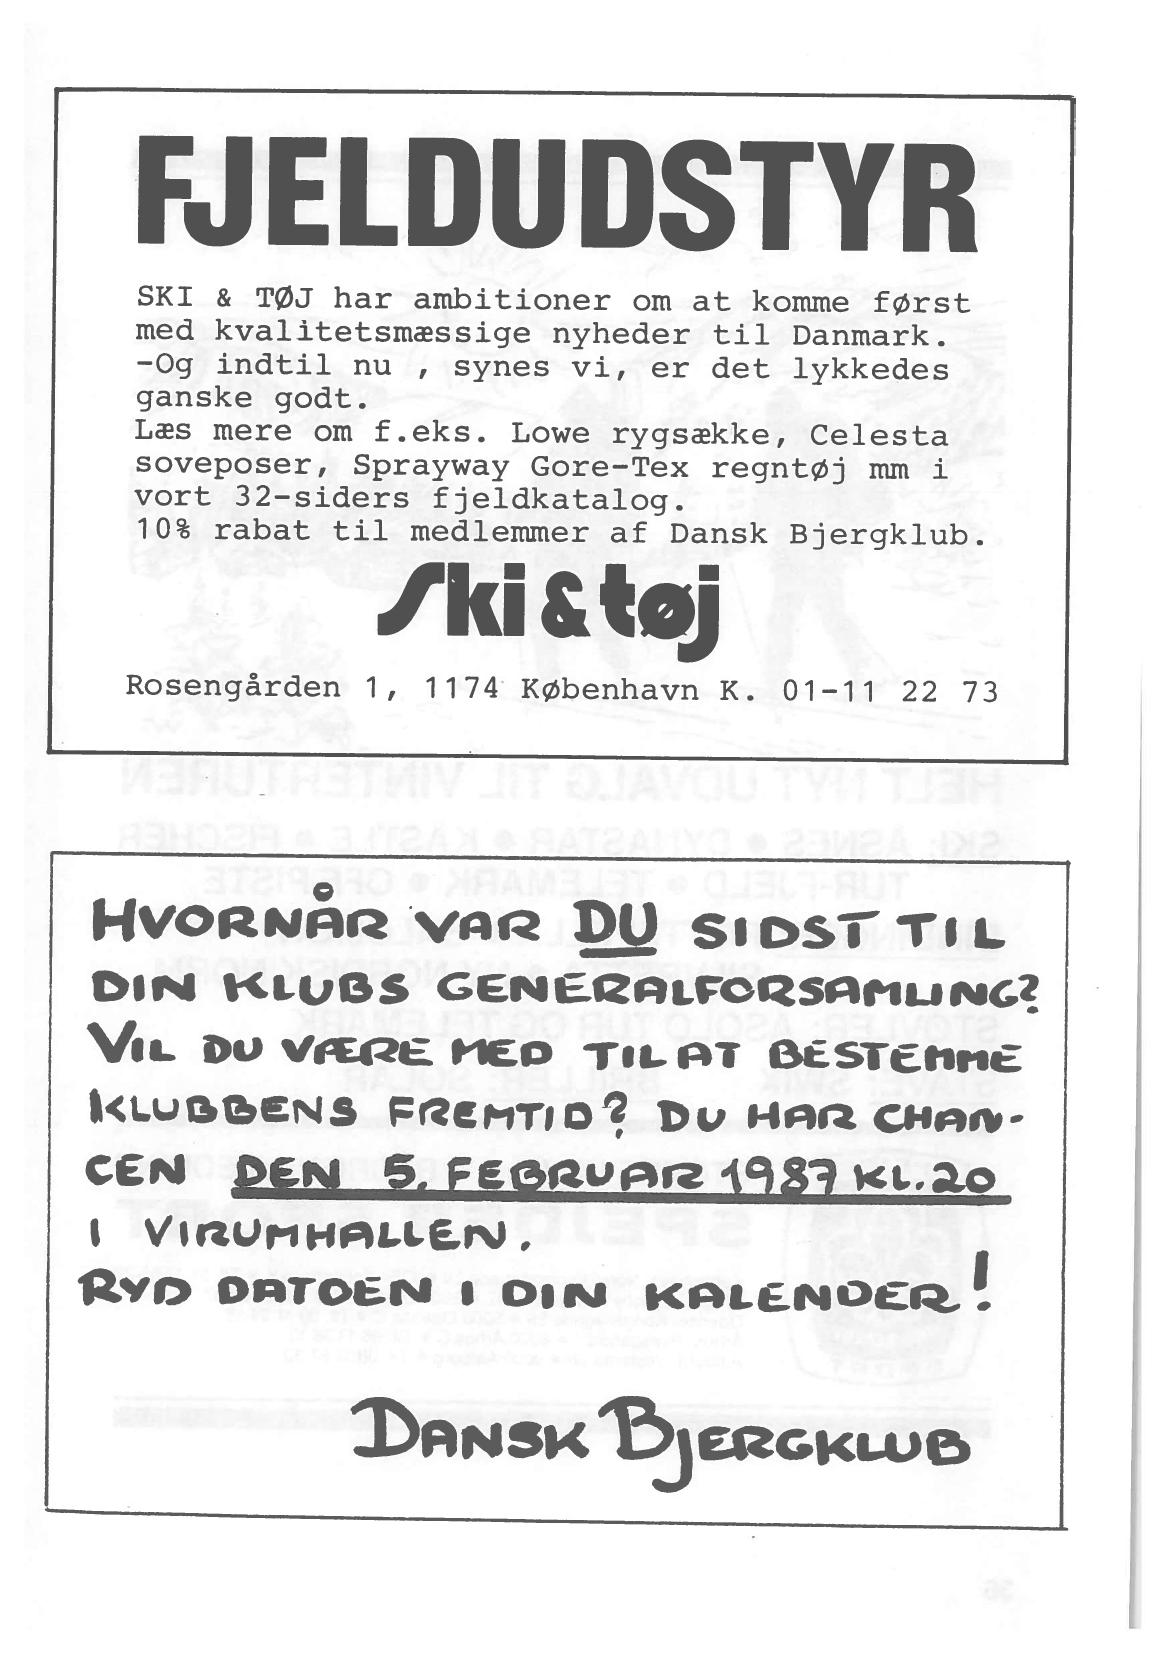 FJELDUDSTYR
SKI & TØJ har ambitioner om at komme først
med kvalitetsmæssige nyheder til Danmark.
-Og indtil nu , synes vi, er det lykkedes
ganske godt.
Læs mere om f.eks. Lowe rygsække, Celesta
soveposer, Sprayway Gore-Tex regntøj mm i
vort 32-siders fjeldkatalog.
10% rabat til medlemmer af Dansk Bjergklub.
Ski & tøj
Rosengården 1, 1174 København K. 01-11 22 73
HVORNÅR VAR DU SIDST TIL
DIN KLUBS GENERALFORSAMLING?
VIL DU VÆRE MED TIL AT BESTEMME
KLUBBENS FREMTID? DU HAR CHAN-
CEN DEN 5. FEBRUAR 1987 KL. 20
I VIRUMHALLEN.
RYD DATOEN I DIN KALENDER!
DANSK BJERGKLUB